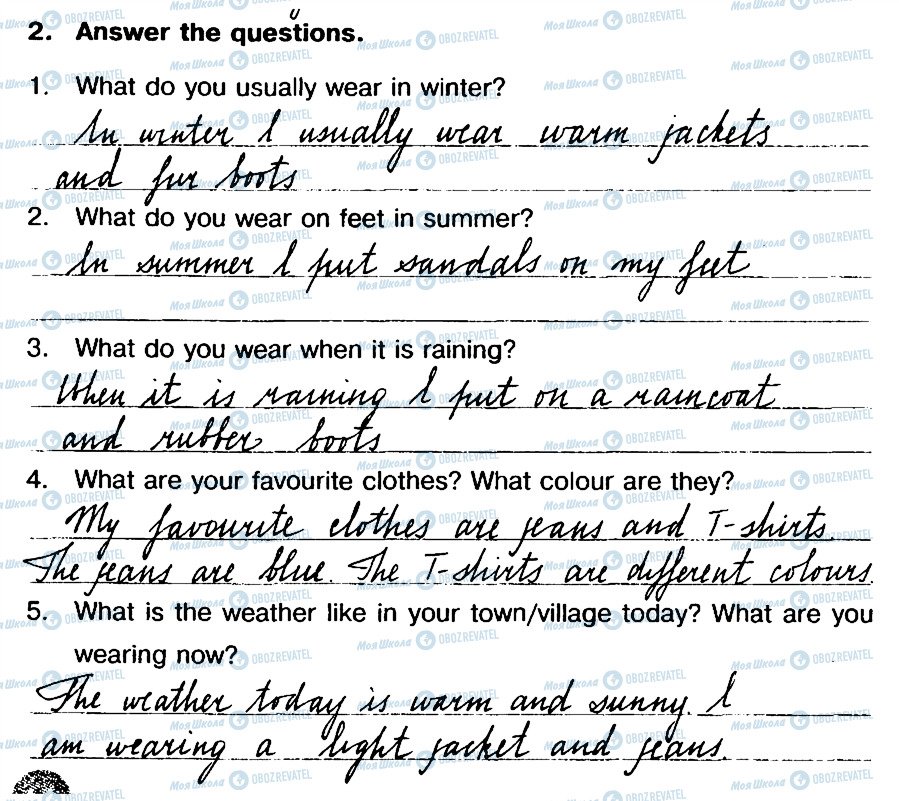 2. Answer the questions.
1. What do you usually wear in winter?
In winter I usually wear warm jackets
and fur boots
2. What do you wear on feet in summer?
In summer I put sandals on my feet
3. What do you wear when it is raining?
When it is raining I put on a raincoat
and rubber boots
4. What are your favourite clothes? What colour are they?
My favourite clothes are jeans and T-shirts.
The jeans are blue. The T-shirts are different colours.
5. What is the weather like in your town/village today? What are you
wearing now?
The weather today is warm and sunny. I
am wearing a light jacket and jeans.
МояШкола OBOZREVATEL